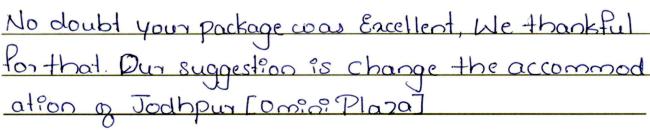 No doubt your package was Excellent, We thankful
for that. Our suggestion is change the accommod
ation of Jodhpur [Omini Plaza]